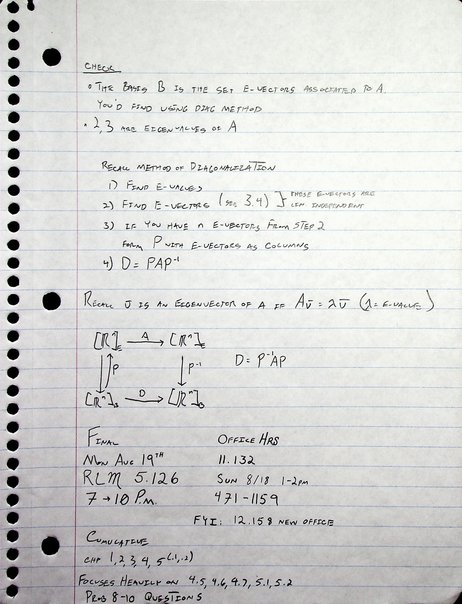 CHECK
• THE BASIS B IS THE SET E-VECTORS ASSOCIATED TO A.
YOU'D FIND USING DIAG METHOD
• 2,3 ARE EIGENVALUES OF A
RECALL METHOD OF DIAGONALIZATION
1) FIND E-VALUES
2) FIND E-VECTORS (SEC 3.4) } THESE E-VECTORS ARE
LIN INDEPENDENT
3) IF YOU HAVE n E-VECTORS FROM STEP 2
FORM P WITH E-VECTORS AS COLUMNS
4) D = PAP⁻¹
RECALL v̄ IS AN EIGENVECTOR OF A IF Av̄ = λv̄ (λ = E-VALUE)
[ℝⁿ]ε —A→ [ℝⁿ]ε
P P⁻¹ D = P⁻¹AP
[ℝⁿ]B —D→ [ℝⁿ]B
FINAL OFFICE HRS
MON AUG 19TH 11.132
RLM 5.126 SUN 8/18 1-2PM
7 → 10 P.M. 471-1159
FYI: 12.158 NEW OFFICE
CUMULATIVE
CHP 1,2,3,4,5(.1,.2)
FOCUSES HEAVILY ON 4.5, 4.6, 4.7, 5.1, 5.2
PROB 8-10 QUESTIONS